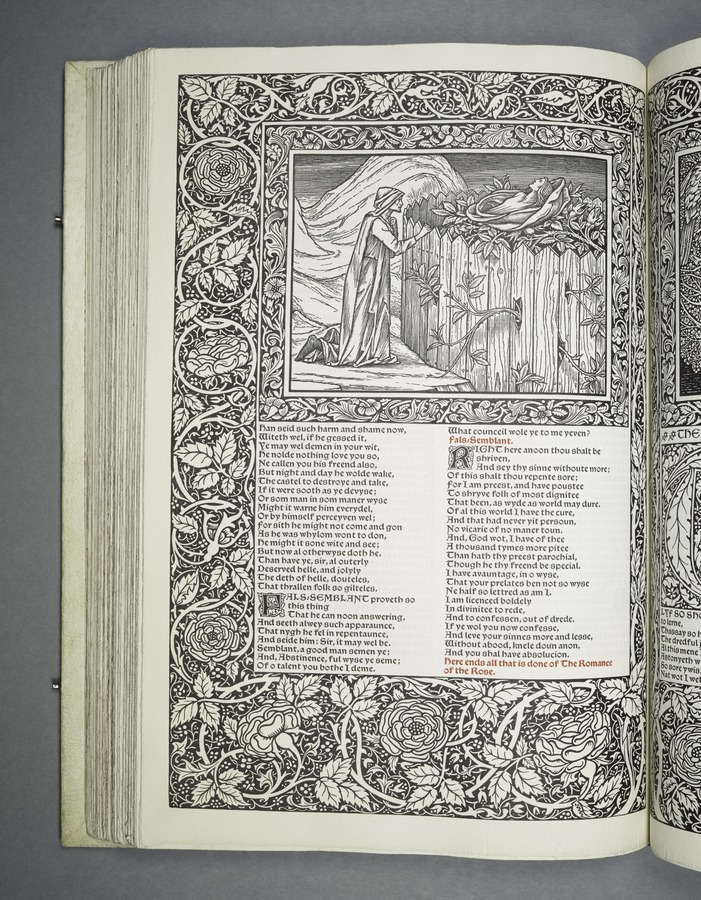 han seid such harm and shame now,
Witeth wel, if he gessed it,
Ye may wel demen in your wit,
He nolde nothing love you so,
Ne callen you his freend also,
But night and day he wolde wake,
The castel to destroye and take,
If it were sooth as ye devyse;
Or som man in som maner wyse
Might it warne him everydel,
Or by himself perceyven wel;
For sith he might not come and gon
As he was whylom wont to don,
He might it sone wite and see;
But now al otherwyse doth he.
Than have ye, sir, al outerly
Deserved helle, and jolyly
The deth of helle, douteles,
That thrallen folk so gilteles.
FALS-SEMBLANT proveth so
this thing
That he can noon answering,
And seeth alwey such apparaunce,
That nygh he fel in repentaunce,
And seide him: Sir, it may wel be.
Semblant, a good man semen ye;
And, Abstinence, ful wyse ye seme;
Of o talent you bothe I deme.
What counceil wole ye to me yeven?
Fals-Semblant.
RIGHT here anoon thou shalt be
shriven,
And sey thy sinne without more;
Of this shalt thou repente sore;
For I am preest, and have poustee
To shryve folk of most dignitee
That been, as wyde as world may dure.
Of al this world I have the cure,
And that had never yit persoun,
No vicarie of no maner toun.
And, God wot, I have of thee
A thousand tymes more pitee
Than hath thy preest parochial,
Though he thy freend be special.
I have avauntage, in o wyse,
That your prelates ben not so wyse
Ne half so lettred as am I.
I am licenced boldely
In divinitee to rede,
And to confessen, out of drede.
If ye wol you now confesse,
And leve your sinnes more and lesse,
Without abood, knele doun anon,
And you shal have absolucion.
Here ends all that is done of The Romance
of the Rose.
THE
LYF SO SHO
to lerne,
Thassay so h
The dredful j
Al this mene
Astonyeth w
So sore ywis
Nat wot I wel